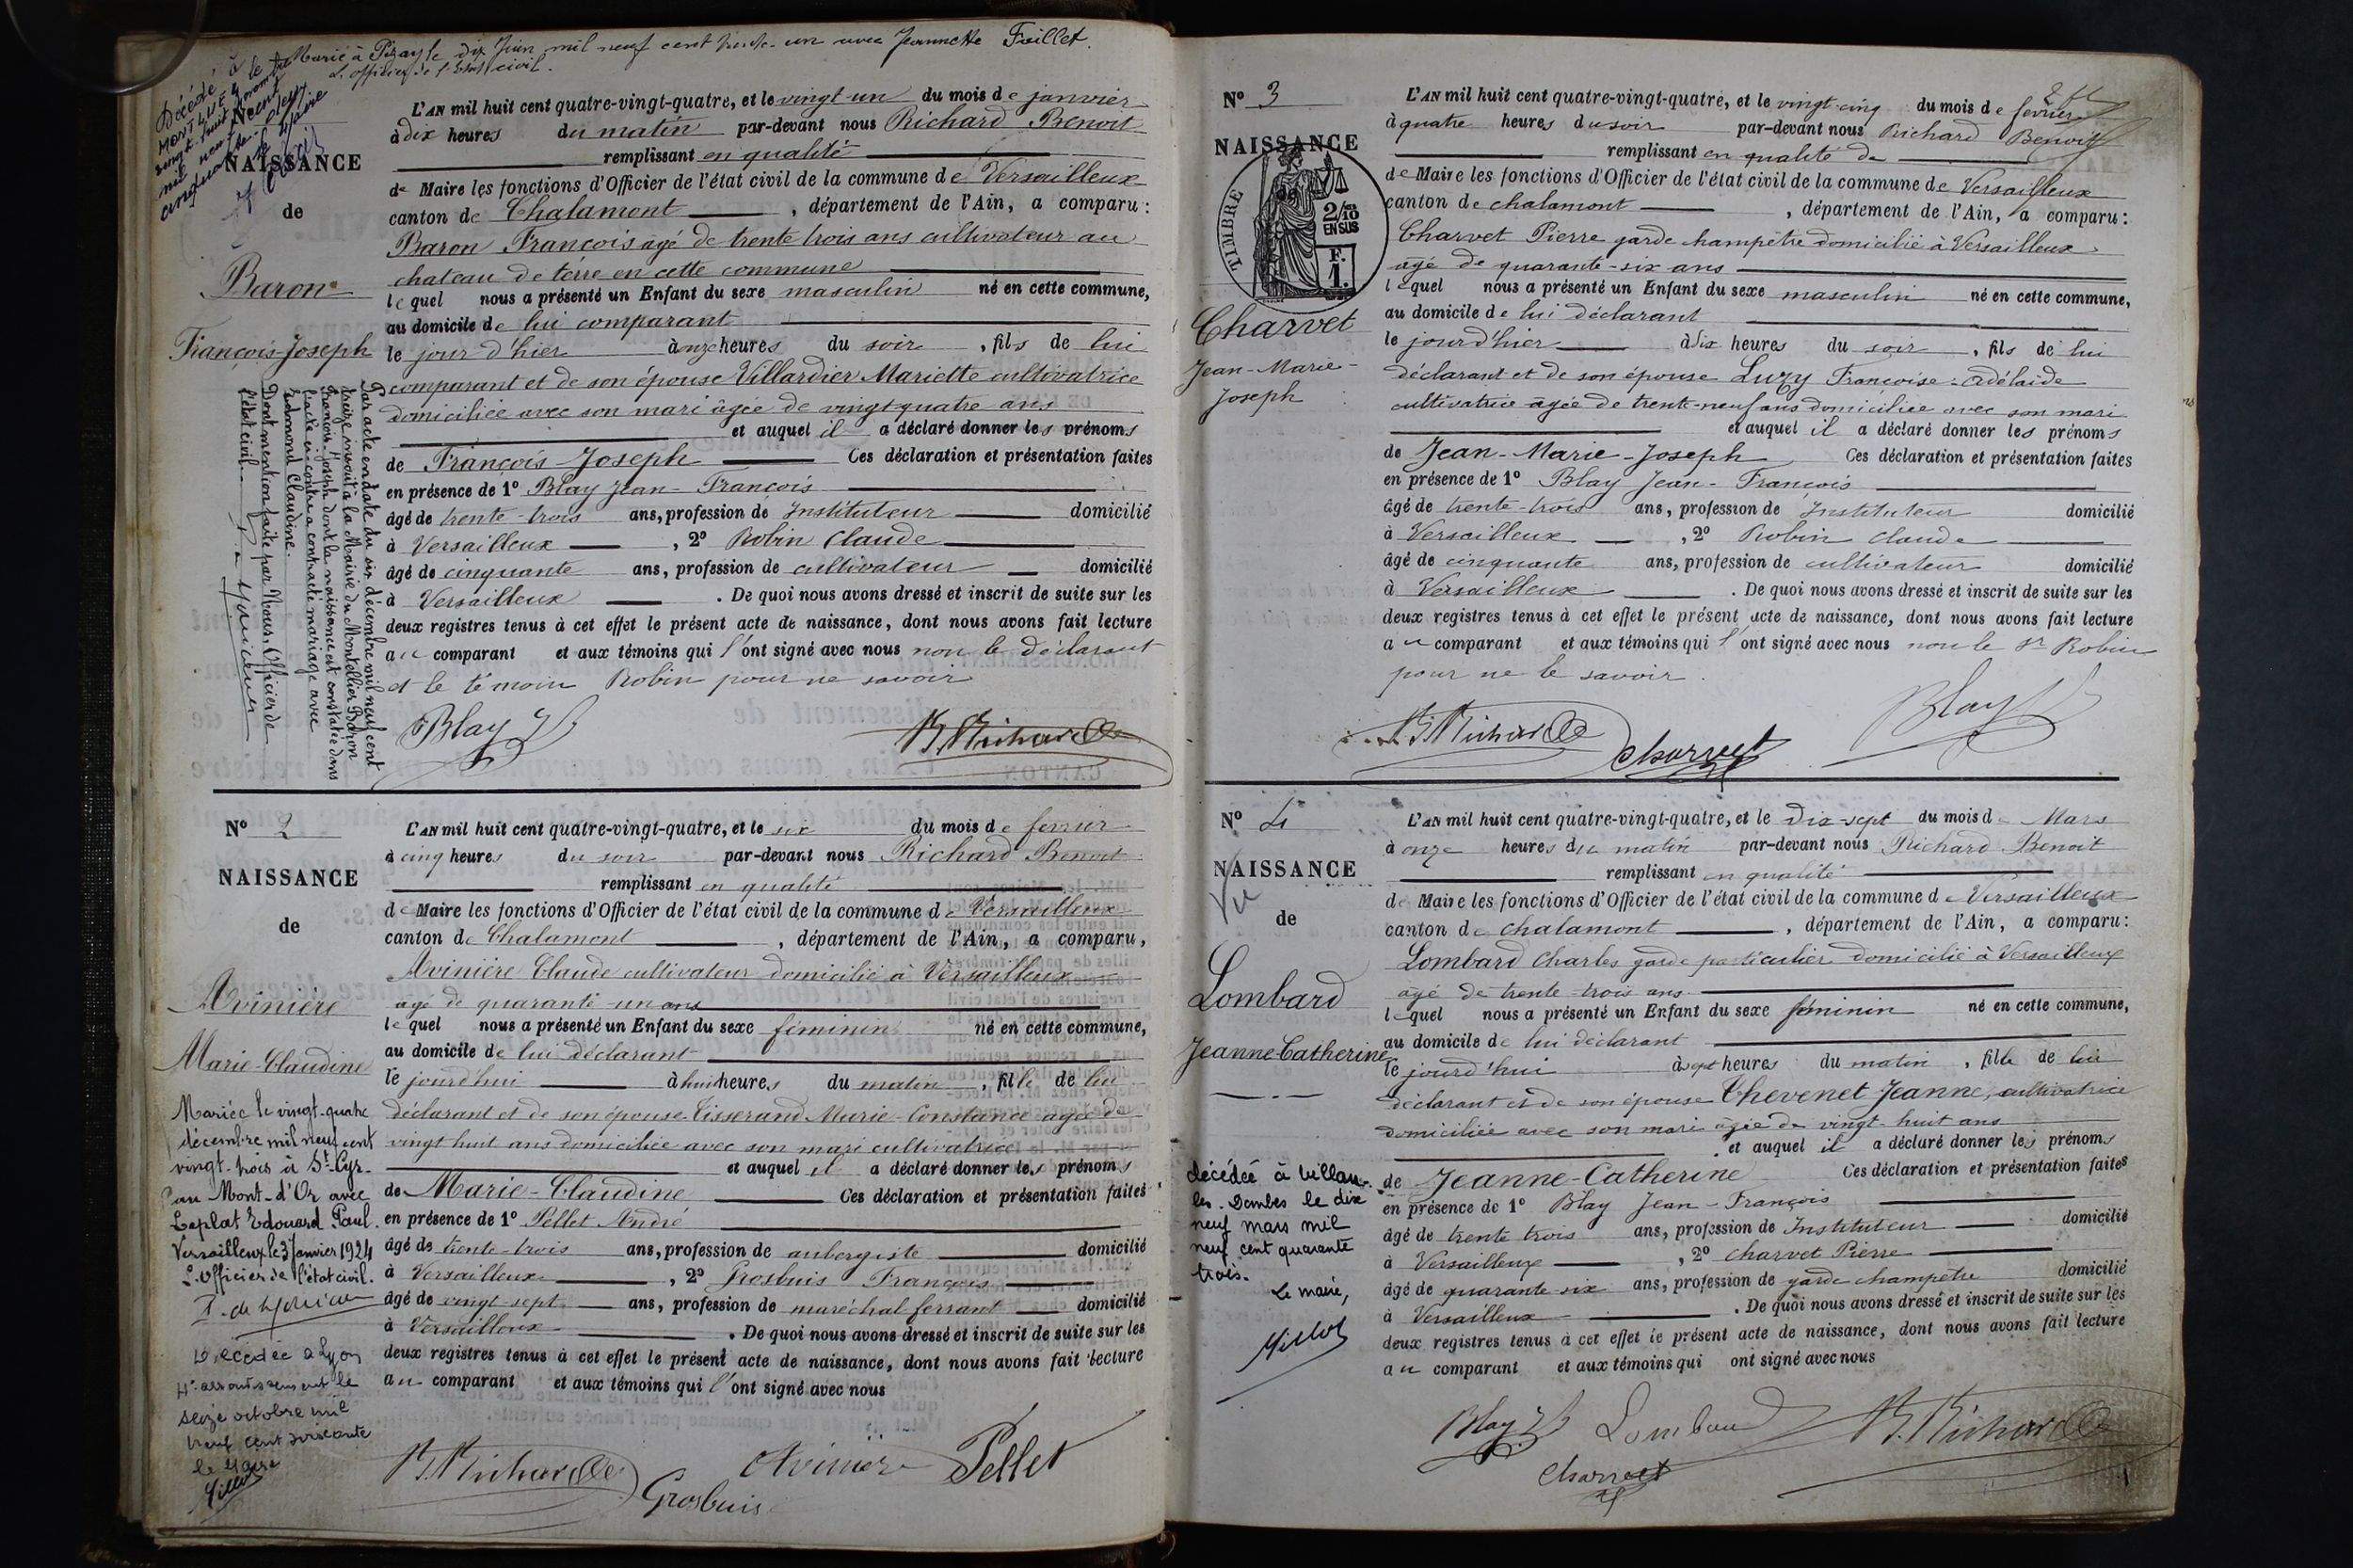 Marié à Pizay le dix Juin mil neuf cent trente-un avec Jeannette Feillet.
L'officier de l'Etat civil.
Décédé à
le
vingt huit
mil neuf cent
cinquante deux
le Maire
NAISSANCE
de
Baron
François Joseph
L'AN mil huit cent quatre-vingt-quatre, et le vingt-un du mois de janvier
à dix heures du matin par-devant nous Richard Benoit
remplissant en qualité
de Maire les fonctions d'Officier de l'état civil de la commune de Versailleux
canton de Chalamont, département de l'Ain, a comparu :
Baron François âgé de trente trois ans cultivateur au
chateau de terre en cette commune
lequel nous a présenté un Enfant du sexe masculin né en cette commune,
au domicile de lui comparant
le jour d'hier à onze heures du soir, fils de lui
comparant et de son épouse Villardier Mariette cultivatrice
domiciliée avec son mari âgée de vingt quatre ans
et auquel il a déclaré donner les prénoms
de François-Joseph Ces déclaration et présentation faites
en présence de 1º Blay Jean-François
âgé de trente-trois ans, profession de Instituteur domicilié
à Versailleux, 2º Robin Claude
âgé de cinquante ans, profession de cultivateur domicilié
à Versailleux. De quoi nous avons dressé et inscrit de suite sur les
deux registres tenus à cet effet le présent acte de naissance, dont nous avons fait lecture
au comparant et aux témoins qui l'ont signé avec nous non le déclarant
et le témoin Robin pour ne savoir
Blay B. Richard
Par acte en date du six décembre mil neuf cent
treize inscrit à la Mairie du Montellier Baron
François-Joseph dont la naissance est constatée dans
l'acte ci-contre a contracté mariage avec
Edmond Claudine.
Dont mention faite par Nous, Officier de
l'état civil.
Nº 2
NAISSANCE
de
Avinière
Marie-Claudine
Mariée le vingt-quatre
décembre mil neuf cent
vingt-trois à St-Cyr-
au Mont-d'Or avec
Leplat Edouard Paul.
Versailleux le 3 Janvier 1924
L'officier de l'état civil.
Décédée à Lyon
4e arrondissement le
seize octobre mil
neuf cent soixante
le Maire
L'AN mil huit cent quatre-vingt-quatre, et le six du mois de fevrier
à cinq heures du soir par-devant nous Richard Benoit
remplissant en qualité
de Maire les fonctions d'Officier de l'état civil de la commune de Versailleux
canton de Chalamont, département de l'Ain, a comparu,
Avinière Claude cultivateur domicilié à Versailleux
âgé de quarante-un ans
lequel nous a présenté un Enfant du sexe féminin né en cette commune,
au domicile de lui déclarant
le jourd'hui à huit heures du matin, fille de lui
déclarant et de son épouse Tisserand Marie-Constance âgée de
vingt huit ans domiciliée avec son mari cultivatrice
et auquel il a déclaré donner les prénoms
de Marie-Claudine Ces déclaration et présentation faites
en présence de 1º Pellet André
âgé de trente-trois ans, profession de aubergiste domicilié
à Versailleux, 2º Grosbuis François
âgé de vingt-sept ans, profession de maréchal ferrant domicilié
à Versailleux. De quoi nous avons dressé et inscrit de suite sur les
deux registres tenus à cet effet le présent acte de naissance, dont nous avons fait lecture
au comparant et aux témoins qui l'ont signé avec nous
B. Richard Grosbuis Avinière Pellet
Nº 3
NAISSANCE
TIMBRE
2/10
EN SUS
F.
1.
Charvet
Jean-Marie-
Joseph
L'AN mil huit cent quatre-vingt-quatre, et le vingt-cinq du mois de février
à quatre heures du soir par-devant nous Richard Benoit
remplissant en qualité de
de Maire les fonctions d'Officier de l'état civil de la commune de Versailleux
canton de chalamont, département de l'Ain, a comparu :
Charvet Pierre garde champêtre domicilié à Versailleux
âgé de quarante-six ans
lequel nous a présenté un Enfant du sexe masculin né en cette commune,
au domicile de lui déclarant
le jourd'hier à dix heures du soir, fils de lui
déclarant et de son épouse Luzy Françoise-Adélaïde
cultivatrice âgée de trente-neuf ans domiciliée avec son mari
et auquel il a déclaré donner les prénoms
de Jean-Marie-Joseph Ces déclaration et présentation faites
en présence de 1º Blay Jean-François
âgé de trente-trois ans, profession de Instituteur domicilié
à Versailleux, 2º Robin claude
âgé de cinquante ans, profession de cultivateur domicilié
à Versailleux. De quoi nous avons dressé et inscrit de suite sur les
deux registres tenus à cet effet le présent acte de naissance, dont nous avons fait lecture
au comparant et aux témoins qui l'ont signé avec nous non le Sr Robin
pour ne le savoir.
B. Richard Charvet Blay
Nº 4
NAISSANCE
Vu
de
Lombard
Jeanne-Catherine
décédée à Villars
les-Dombes le dix
neuf mars mil
neuf cent quarante
trois.
Le maire,
L'AN mil huit cent quatre-vingt-quatre, et le dix-sept du mois de Mars
à onze heures du matin par-devant nous Richard Benoit
remplissant en qualité
de Maire les fonctions d'Officier de l'état civil de la commune de Versailleux
canton de chalamont, département de l'Ain, a comparu :
Lombard Charles garde particulier domicilié à Versailleux
âgé de trente-trois ans
lequel nous a présenté un Enfant du sexe féminin né en cette commune,
au domicile de lui déclarant
le jourd'hui à sept heures du matin, fille de lui
déclarant et de son épouse Thevenet Jeanne, cultivatrice
domiciliée avec son mari âgée de vingt-huit ans
et auquel il a déclaré donner les prénoms
de Jeanne-Catherine Ces déclaration et présentation faites
en présence de 1º Blay Jean-François
âgé de trente trois ans, profession de Instituteur domicilié
à Versailleux, 2º charvet Pierre
âgé de quarante six ans, profession de garde champêtre domicilié
à Versailleux. De quoi nous avons dressé et inscrit de suite sur les
deux registres tenus à cet effet le présent acte de naissance, dont nous avons fait lecture
au comparant et aux témoins qui ont signé avec nous
Blay Lombard B. Richard
Charvet